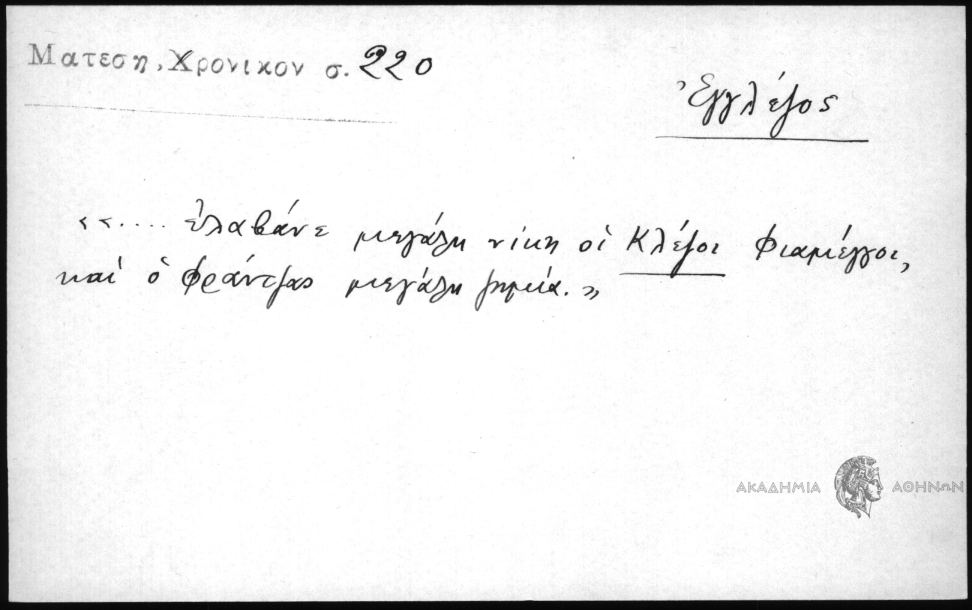 Ματεση, Χρονικον σ. 220
Ἐγγλέζος
«.... ἐλαβάνε μεγάλη νίκη οἱ Κλέζοι Φιαμέγγοι,
καὶ ὁ Φράντζας μεγάλη ζημία.»
ΑΚΑΔΗΜΙΑ ΑΘΗΝΩΝ